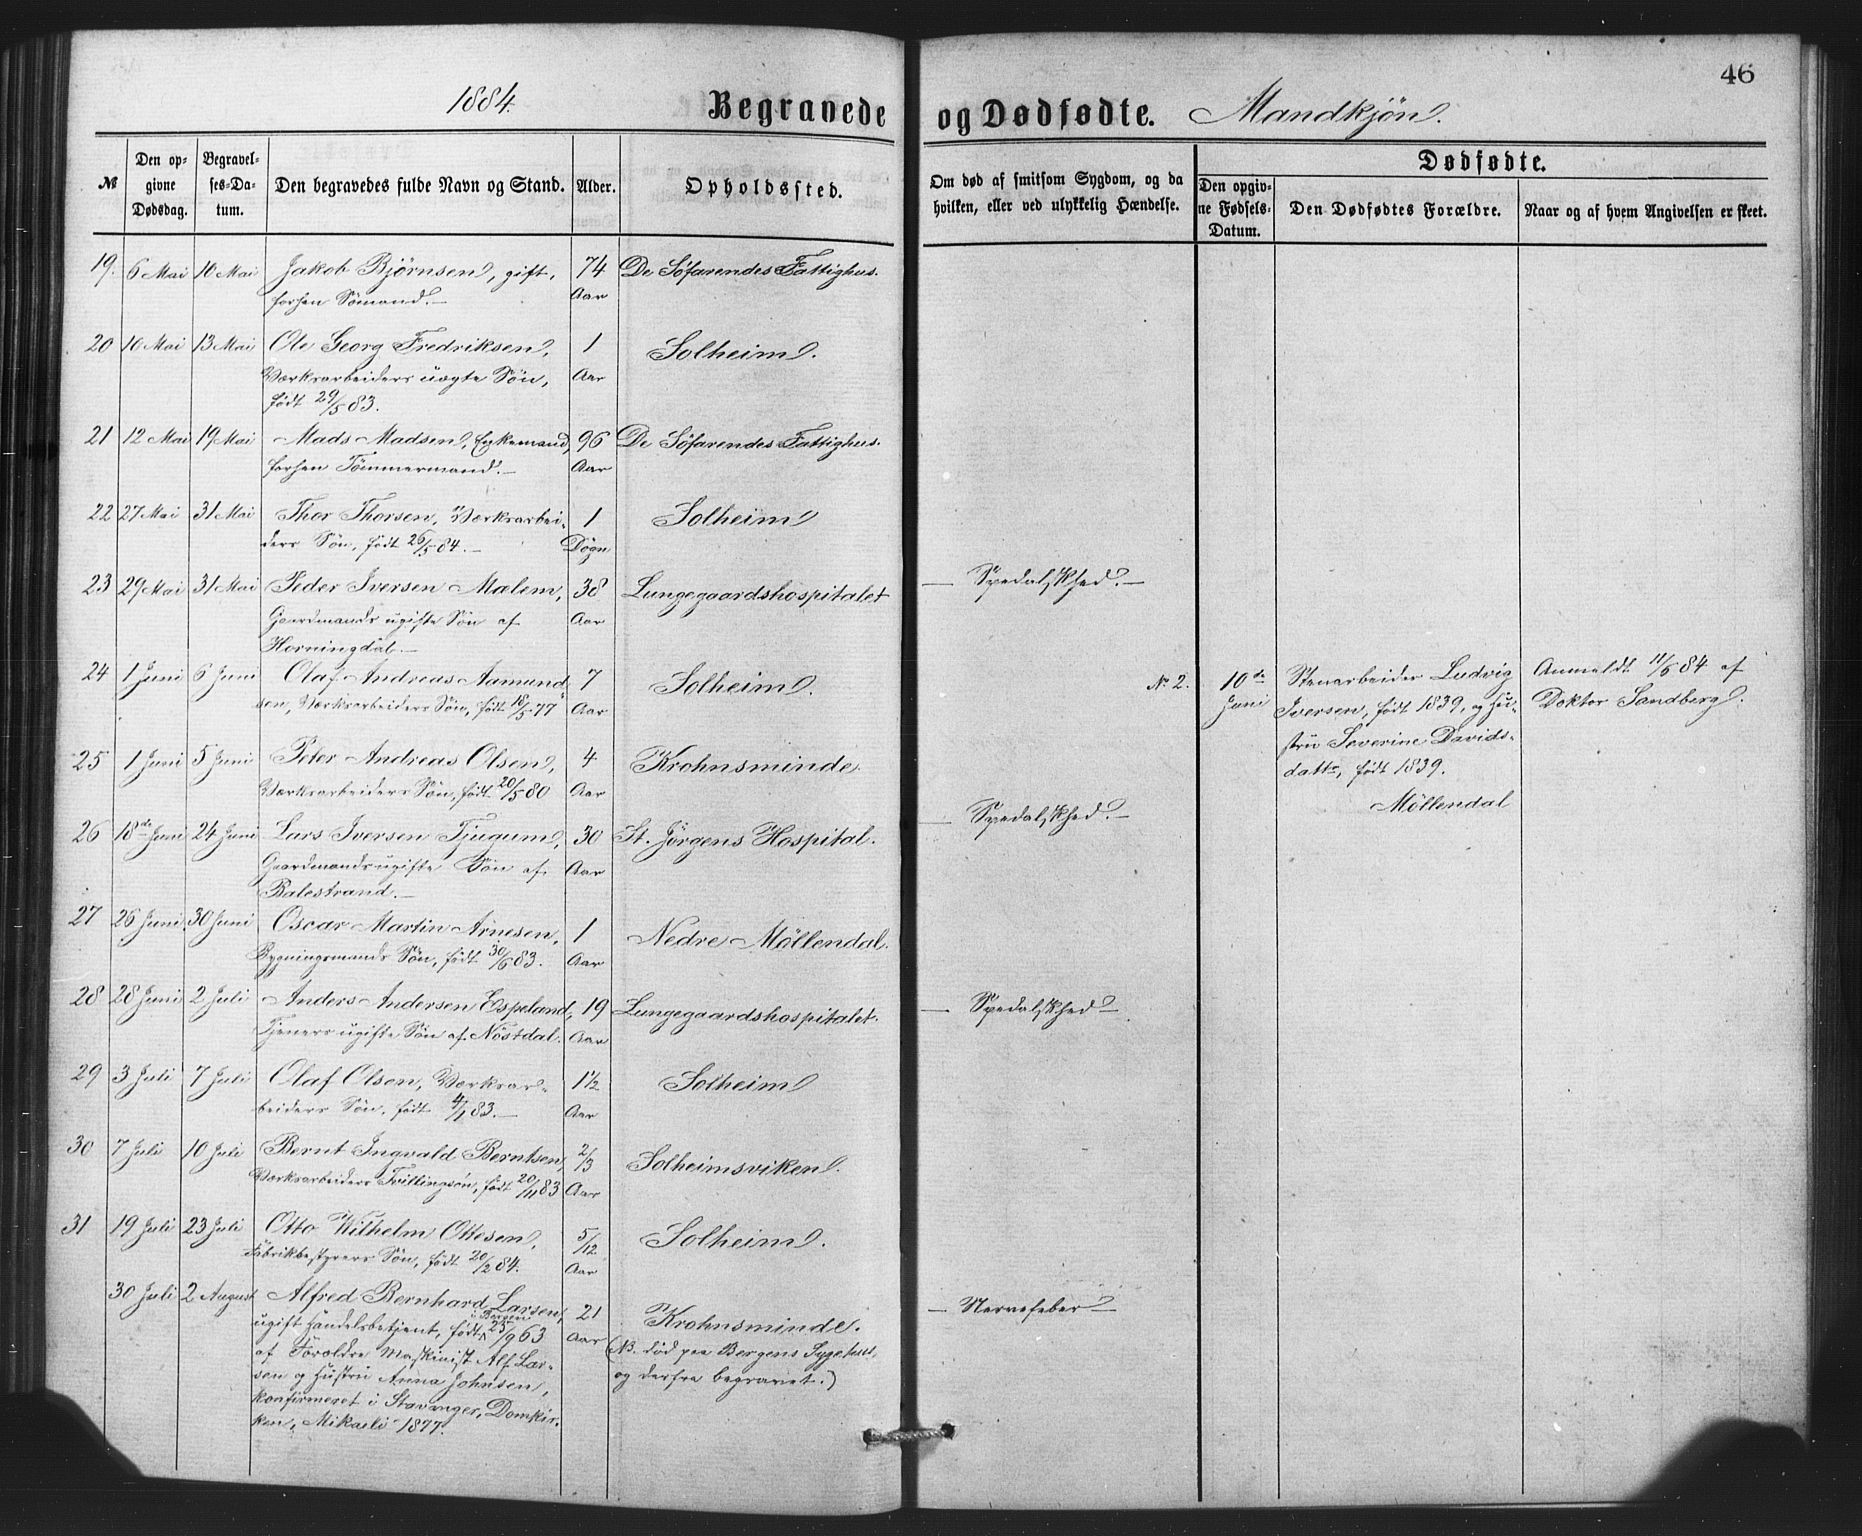 1884.
Begravede
og Dødfødte.
Mandkjøn.
46
№
Den op-
givne
Dødsdag.
Begravel-
ses-Da-
tum.
Den begravedes fulde Navn og Stand.
Alder.
Opholdssted.
Om død af smitsom Sygdom, og da
hvilken, eller ved ulykkelig Hændelse.
Dødfødte.
Den opgiv-
ne Fødsels-
Datum.
Den Dødfødtes Forældre.
Naar og af hvem Angivelsen er skeet.
19. 6 Mai 10 Mai Jakob Bjørnsen, gift, 74 De Söfarendes Fattighus.
forhen Sömand. Aar
20 10 Mai 13 Mai Ole Georg Fredriksen, 1 Solheim.
Værksarbeiders uægte Søn, Aar
født 29/5 83.
21 12 Mai 19 Mai Mads Madsen, Enkemand, 96 De Söfarendes Fattighus.
forhen Tömmermand. Aar
22 27 Mai 31 Mai Thor Thorsen, Værksarbei- 1 Solheim
ders Søn, født 26/5 84. Døgn
23 29 Mai 31 Mai Peder Iversen Mælem, 38 Lungegaardshospitalet — Spedalskhed.
Gaardmands ugifte Søn af Aar
Horningdal.
24 1 Juni 6 Juni Olaf Andreas Aamund- 7 Solheim.
sen, Værksarbeiders Søn, født 18/5 77 Aar
No 2. 10de Juni Stenarbeider Ludvig
Iversen, født 1839, og Hu-
stru Severine Davids-
datter, født 1839.
Möllendal
Anmeldt 11/6 84 af
Doktor Sandberg.
25 1 Juni 5 Juni Peter Andreas Olsen, 4 Krohnsminde.
Værksarbeiders Søn, født 20/5 80 Aar
26 18de Juni 24 Juni Lars Iversen Tjugum, 30 St. Jörgens Hospital. — Spedalskhed.
Gaardmands ugifte Søn af Aar
Balestrand.
27 26 Juni 30 Juni Oscar Martin Arnesen, 1 Nedre Möllendal.
Bygningsmands Søn, født 30/6 83. Aar
28 28 Juni 2 Juli Anders Andersen Espeland, 19 Lungegaardshospitalet. — Spedalskhed
Tjeners ugifte Søn af Nöstdal. Aar
29 3 Juli 7 Juli Olaf Olsen, Værksar- 1½ Solheim
beiders Søn, født 4/1 83. Aar
30 7 Juli 10 Juli Bernt Ingvald Berntsen, 2/3 Solheimsviken.
Værksarbeiders Tvillingsøn, født 20/11 83 Aar
31 19 Juli 23 Juli Otto Wilhelm Ottesen, 5/12 Solheim.
Fabrikbestyrers Søn, født 20/2 84. Aar
30 Juli 2 August Alfred Bernhard Larsen, 21 Krohnsminde. — Nervefeber
ugift Handelsbetjent, født i Bergen 23/9 63 Aar
af Forældre Maskinist Alf Lar-
sen og Hustru Anna Johnsen,
konfirmeret i Stavanger, Domkir-
ken, Mikaeli 1877.
(NB. død paa Bergens Sygehus,
og derfra begravet.)